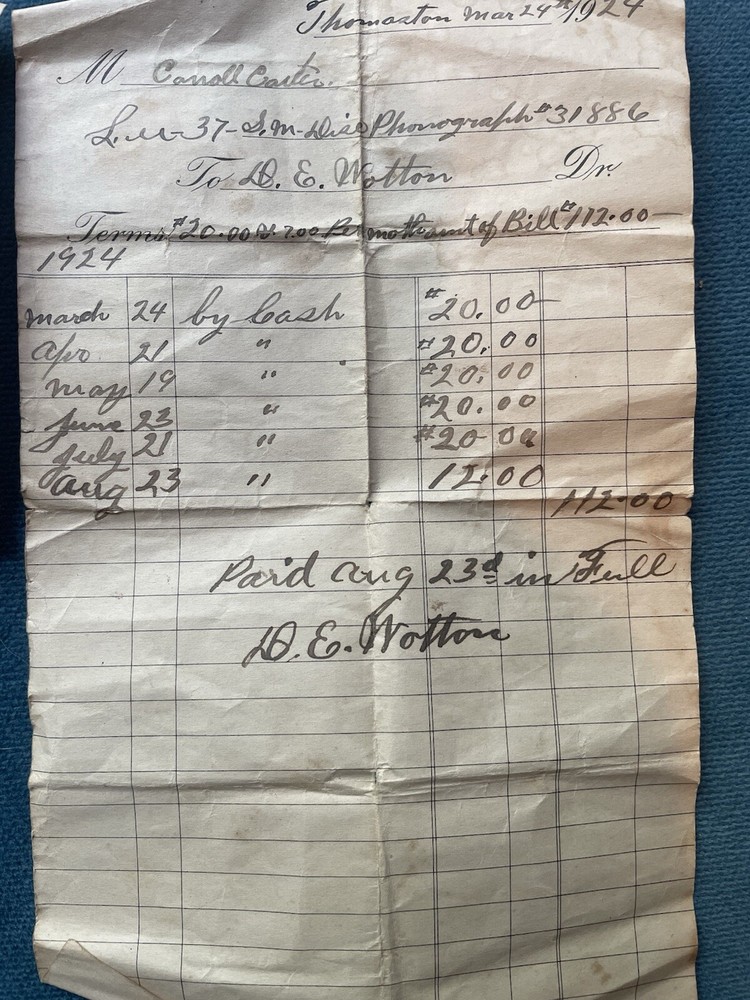 Thomaston Mar 24th 1924
M Carroll Carter.
L.u-37-S.M-Disc Phonograph #31886
To D. E. Wotton Dr.
Terms #20.00 & 7.00 Per moth amt of Bill #112.00
1924
march 24 by Cash #20.00
Apr 21 " #20.00
may 19 " #20.00
june 23 " #20.00
july 21 " #20 00
aug 23 " 12.00
112.00
Paid aug 23d in Full
D. E. Wotton